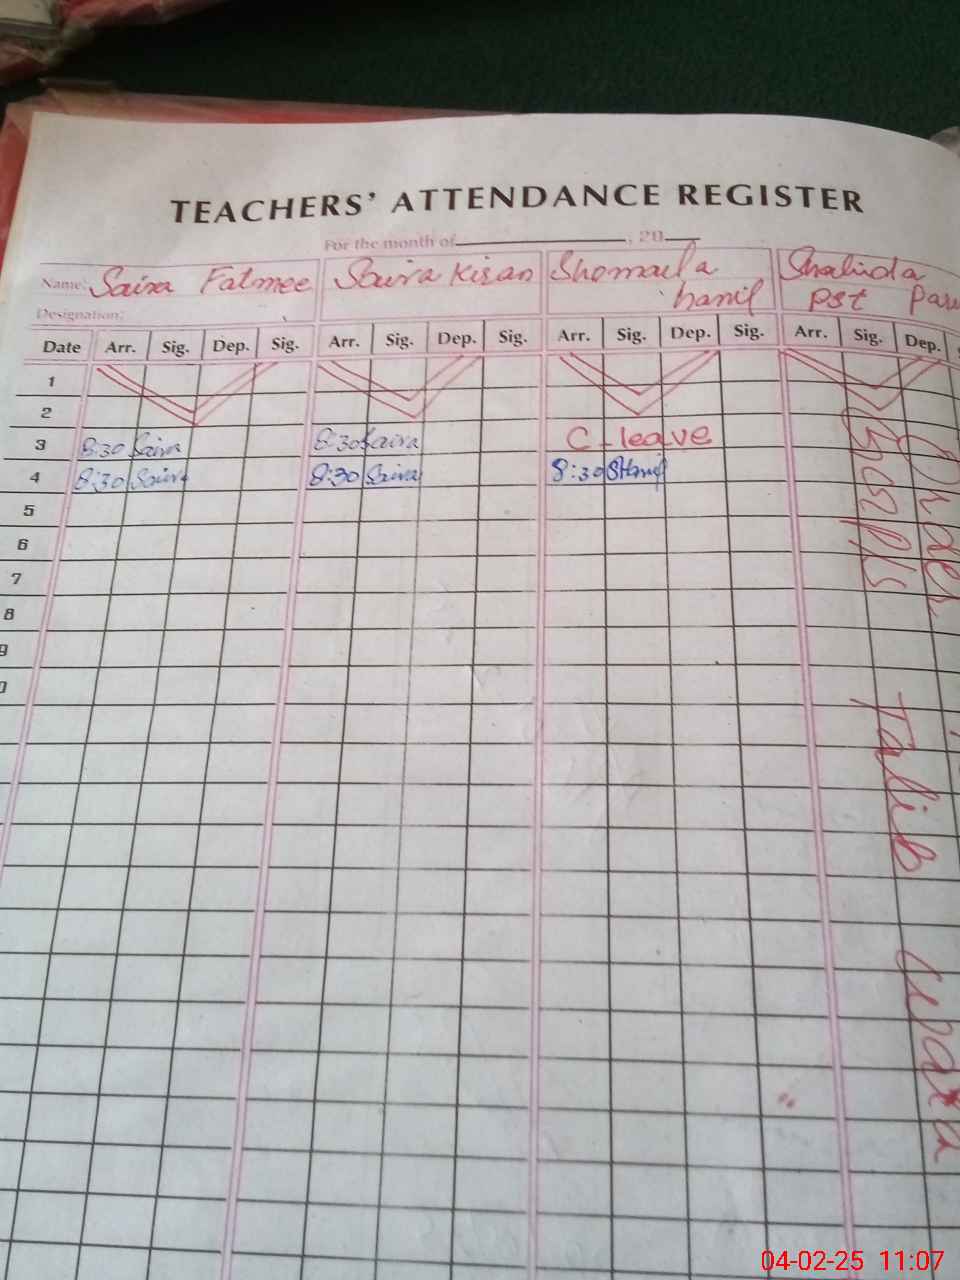 TEACHERS' ATTENDANCE REGISTER
For the month of , 20
Name: Saira Fatmee Saira Kiran Shomaila hanif Shahida
pst
Designation:
Date Arr. Sig. Dep. Sig. Arr. Sig. Dep. Sig. Arr. Sig. Dep. Sig. Arr. Sig. Dep.
1
2
3 8:30 Saira 8:30 Saira C-leave
4 8:30 Saira 8:30 Saira 8:30 SHanif
5
6
7
8
9
Order
Talib wala
04-02-25 11:07